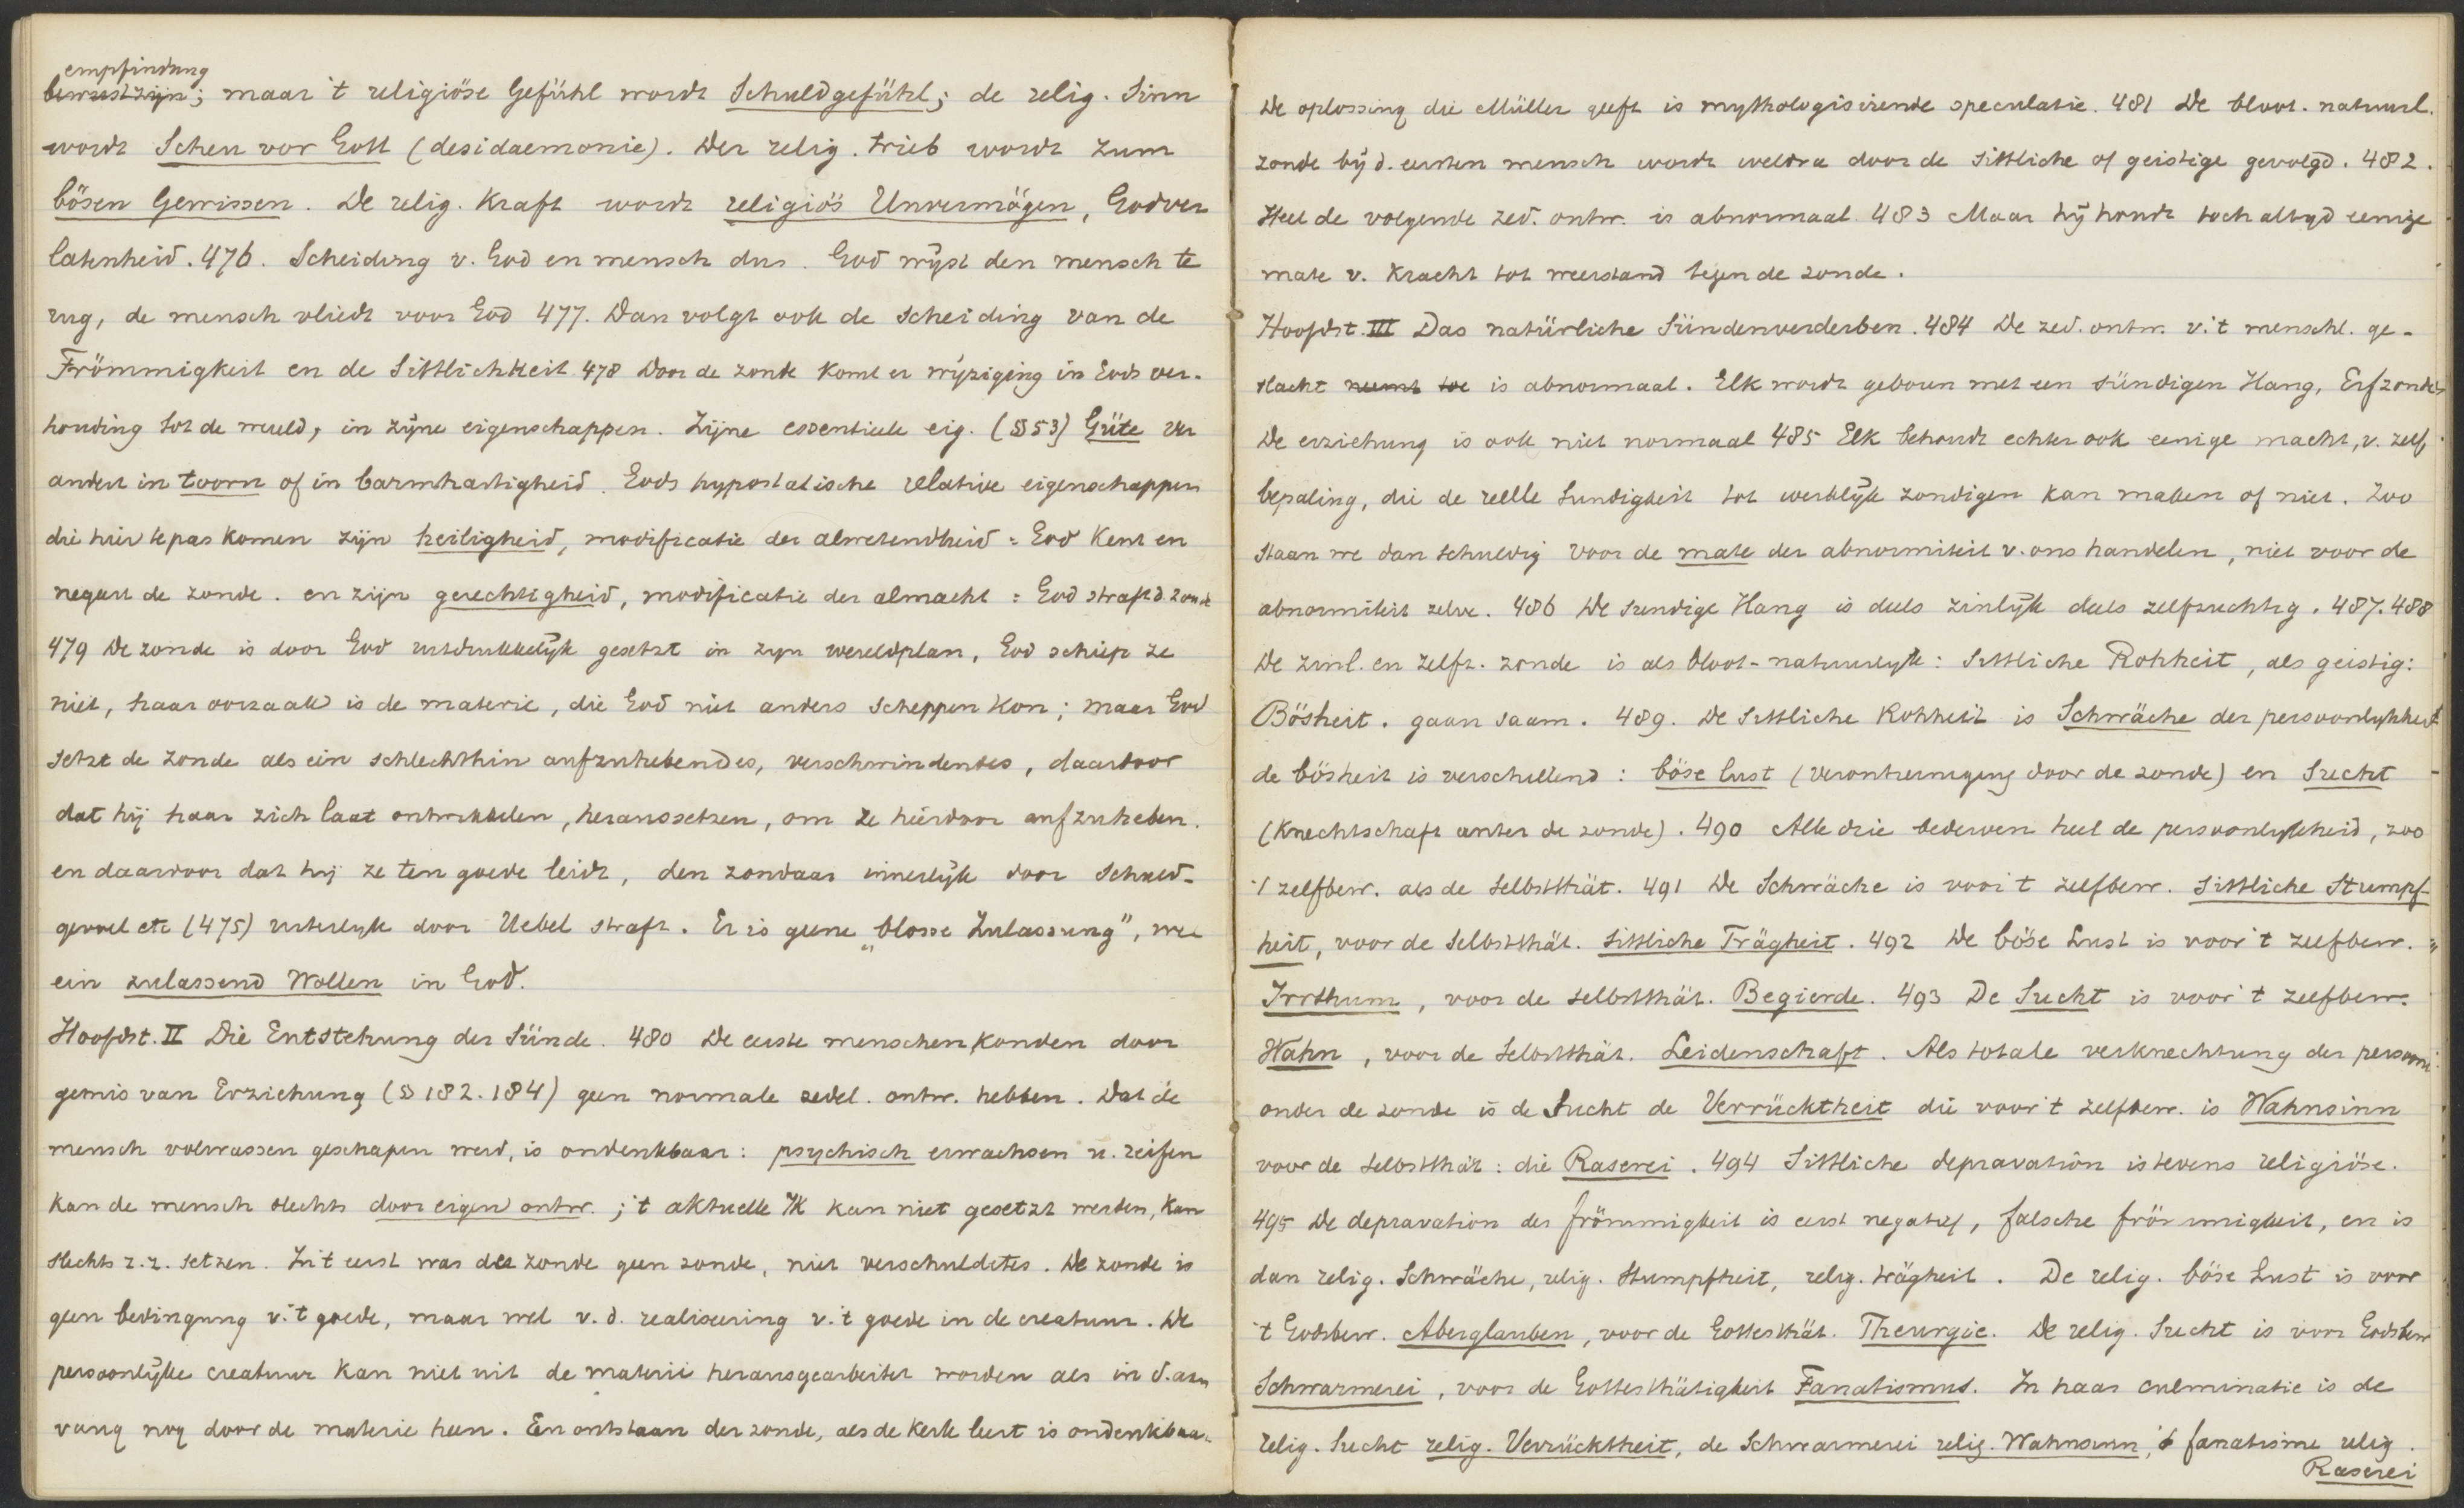 empfindung
bewustzijn; maar 't religiöse Gefühl wordt Schuldgefühl; de relig. Sinn
wordt Scheu vor Gott (desidaemonie). Der relig. trieb wordt zum
bösen Gewissen. De relig. Kraft wordt religiös Unvermögen, Godver
latenheid. 476. Scheiding v. God en mensch dus. God wijst den mensch te
rug, de mensch vliedt voor God 477. Dan volgt ook de scheiding van de
Frömmigkeit en de Sittlichkeit 478 Door de zonde komt er wijziging in Gods ver-
houding tot de wereld, in zijne eigenschappen. Zijne essentieele eig. (§ 53) Güte ver
andert in toorn of in barmhartigheid. Gods hypostatische relative eigenschappen
die hier te pas komen zijn heiligheid, modificatie der alwetendheid = God kent en
negeert de zonde. en zijn gerechtigheid, modificatie der almacht = God straft d. zonde
479 De zonde is door God uitdrukkelijk gesetzt in zijn wereldplan, God schiep ze
niet, haar oorzaak is de materie, die God niet anders scheppen kon; maar God
setzt de zonde als ein schlechthin aufzuhebendes, verschwindendes, daardoor
dat hij haar zich laat ontwikkelen, heraussetzen, om ze hierdoor aufzuheben.
en daardoor dat hij ze ten goede leidt, den zondaar innerlijk door Schuld-
gevoel etc (475) uiterlijk door Uebel straft. Er is geene „blosse Zulassung", wel
ein zulassend Wollen in God.
Hoofdst. II Die Entstehung der Sünde. 480 De eerste menschen konden door
gemis van Erziehung (§ 182. 184) geen normale zedel. ontw. hebben. Dat de
mensch volwassen geschapen werd, is ondenkbaar: psychisch erwachsen u. reifen
kan de mensch slechts door eigen ontw.; 't aktuelle Ik kan niet gesetzt werden, kan
slechts z.z. setzen. In 't eerst was dee zonde geen zonde, niet verschuldetes. De zonde is
geen bedingung v. 't goede, maar wel v. d. realiseering v. 't goede in de creatuur. De
persoonlijke creatuur kan niet uit de materie herausgearbeitet worden als in d. aan
vang nog door de materie heen. Een ontstaan der zonde, als de kerk leert is ondenkbaar.
De oplossing die Müller geeft is mythologisirende speculatie. 481 De bloot. natuurl.
zonde bij d. eersten mensch wordt weldra door de sittliche of geistige gevolgd. 482.
Heel de volgende zed. ontw. is abnormaal 483 Maar hij houdt toch altijd eenige
mate v. kracht tot weerstand tegen de zonde.
Hoofdst. III Das natürliche Sündenverderben. 484 De zed. ontw. v. 't menschl. ge-
slacht neemt toe is abnormaal. Elk wordt geboren met een sündigen Hang, Erfzonde,
De erziehung is ook niet normaal 485 Elk behoudt echter ook eenige macht, v. zelf
bepaling, die de reelle Sundigkeit tot werklijk zondigen kan maken of niet. Zoo
staan we dan schuldig voor de mate der abnormiteit v. ons handelen, niet voor de
abnormiteit zelve. 486 De sundige Hang is deels zinlijk deels zelfzuchtig. 487. 488
De zinl. en zelfz. zonde is als bloot-natuurlyk: sittliche Rohheit, als geistig:
Bösheit. gaan saam. 489. De sittliche Rohheit is Schwäche der persoonlykheit
de bösheit is verschillend: böse lust (verontreiniging door de zonde) en Sucht
(Knechtschaft unter de zonde). 490 Alle drie bederven heel de persoonlykheid, zoo
't zelfbew. als de Selbstthät. 491 De Schwäche is voor 't zelfbew. sittliche Stumpf-
heit, voor de Selbstthät. sittliche Trägheit. 492 De böse Lust is voor 't zelfbew. =
Irrthum, voor de selbstthät. Begierde. 493 De Sucht is voor 't zelfbew.
Wahn, voor de Selbstthät. Leidenschaft. Als totale verknechtung der persoonl.
onder de zonde is de Sucht de Verrücktheit die voor 't zelfbew. is Wahnsinn
voor de selbstthät: die Raserei. 494 Sittliche depravation is tevens religiöse.
495 De depravation der frömmigkeit is eerst negatief, falsche frömmigkeit, en is
dan relig. Schwäche, relig. Stumpfheit, relig. trägheit. De relig. böse Lust is voor
't Godsbew. Aberglauben, voor de Gottesthät. Theurgie. De relig. Sucht is voor Godsbew
Schwarmerei, voor de Gottesthätigkeit Fanatismus. In haar culminatie is de
relig. Sucht relig. Verrücktheit, de Schwarmerei relig. Wahnsinn, 't fanatisme relig.
Raserei